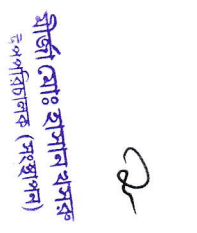 মীর্জা মোঃ হাসান খসরু
উপপরিচালক (সংস্থাপন)